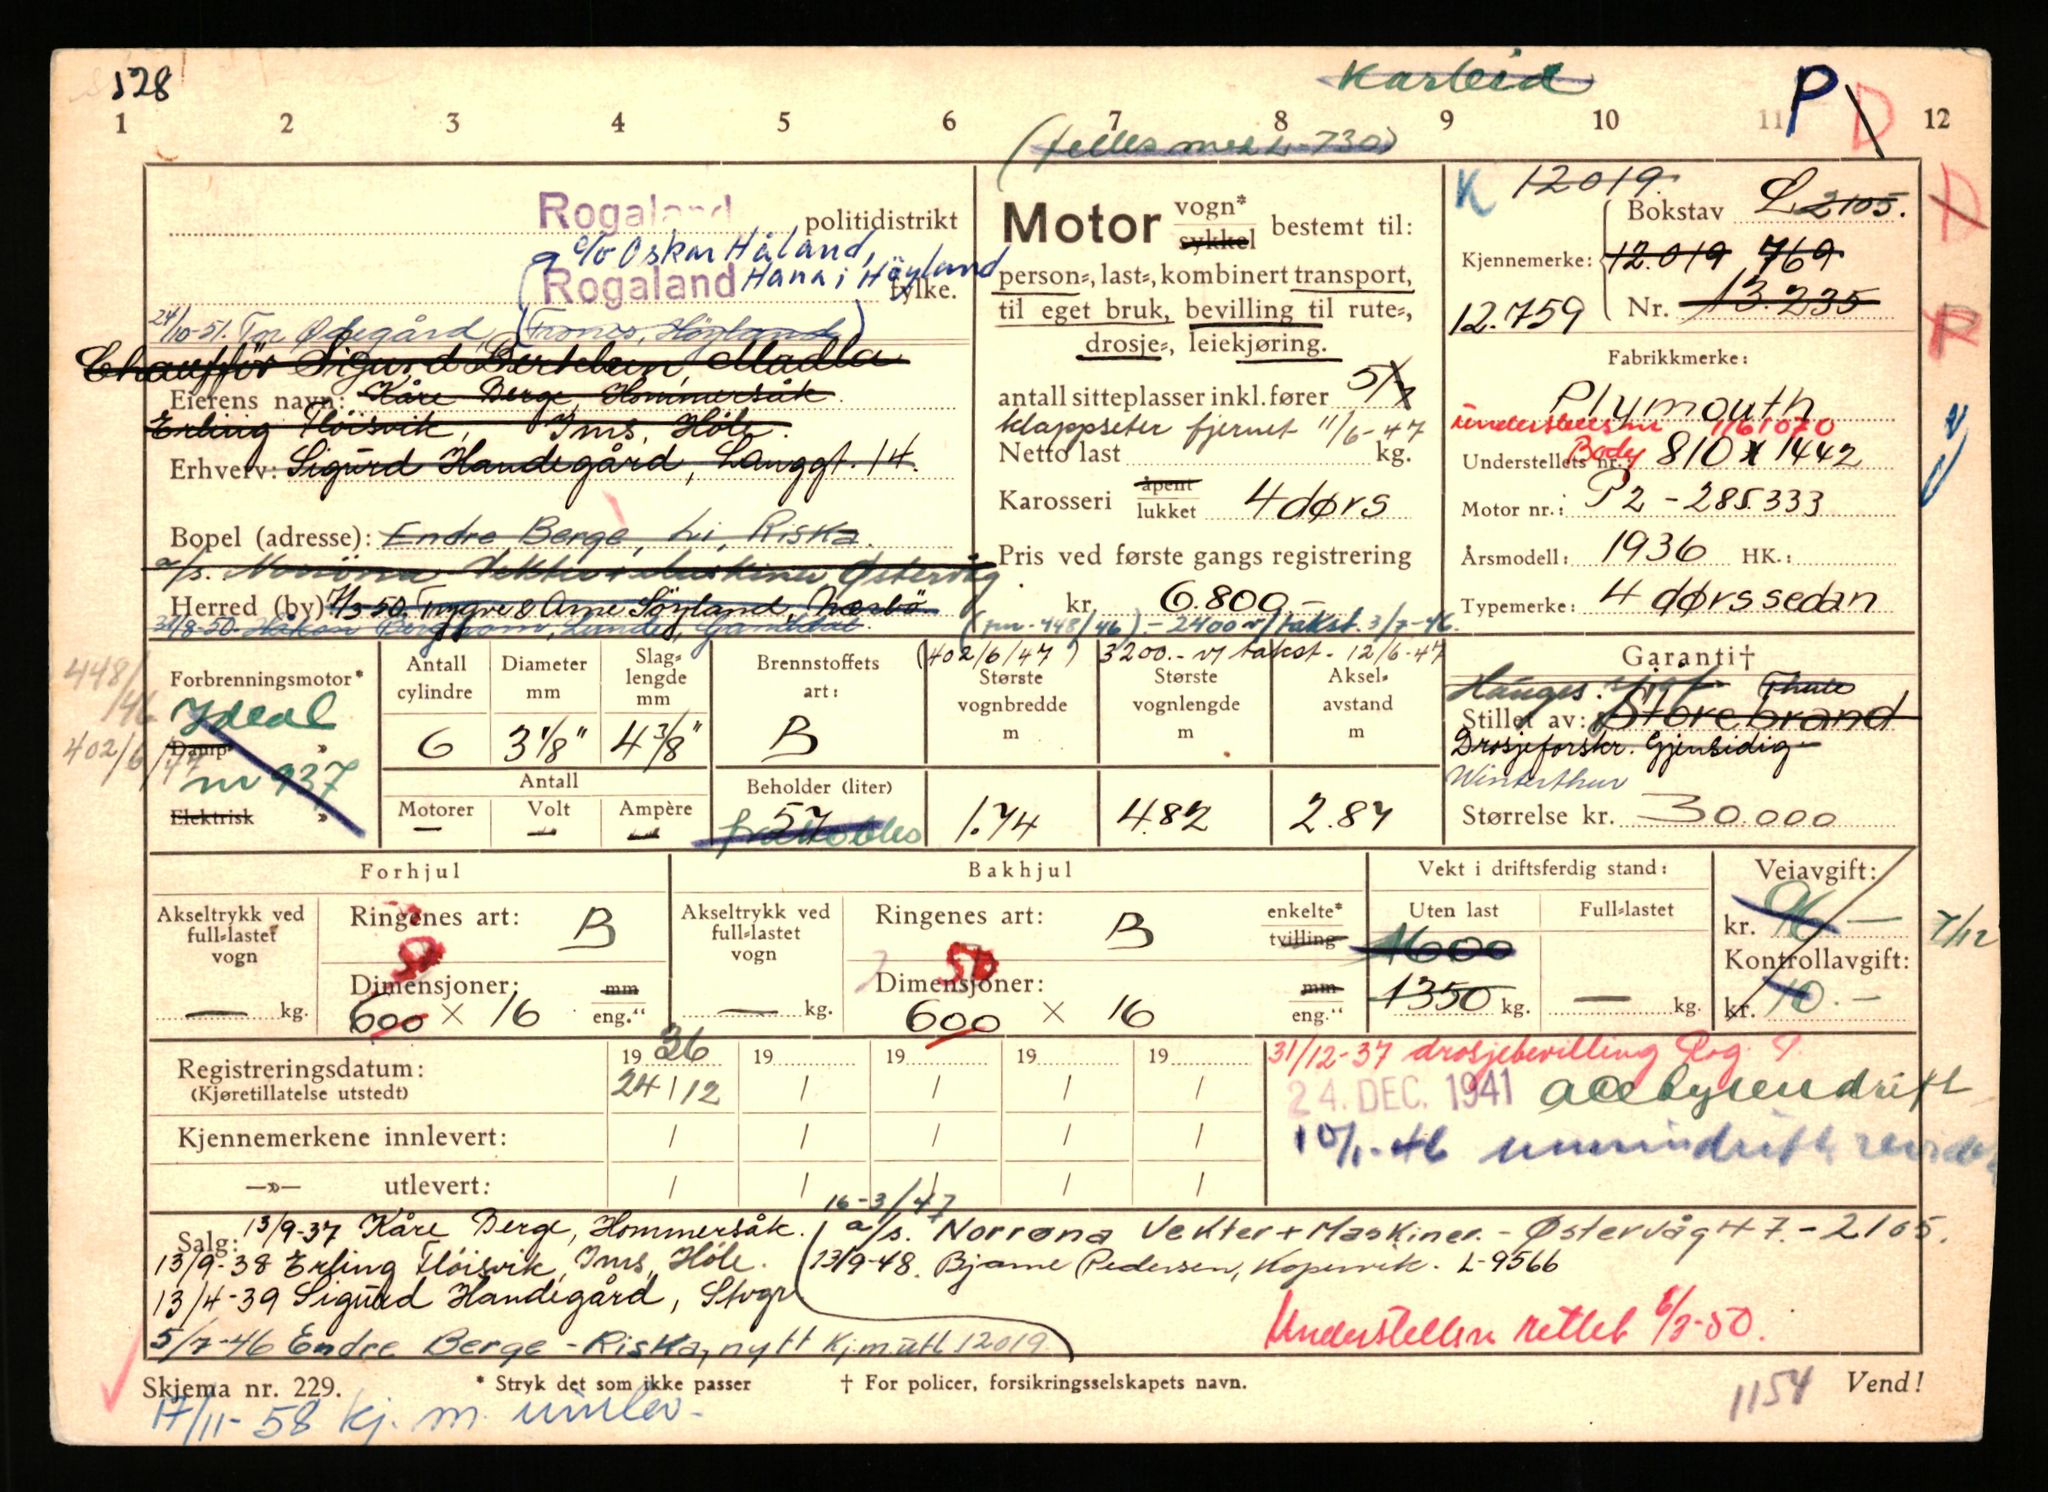 128
Karleid
P D
1 2 3 4 5 6 7 8 9 10 11 12
(felles med L-730)
Rogaland politidistrikt
c/o Oskar Håland,
Hana i Höyland
Rogaland fylke.
24/10-51. Tor Ødegård, (Tronæs, Höyland)
Chauffør Sigurd Bertelsen, Madla
Eierens navn: Kåre Berge, Hommersåk.
Erling Flöisvik, Ims, Höle.
Erhverv: Sigurd Handegård, Langgt. 14.
Bopel (adresse): Endre Berge, Li, Riska.
a/s. Norröna Vekter + Maskiner, Østervåg
Herred (by) 7/3 50. Trygve & Arne Söyland, Nærbö.
31/8-50. Håkon Bergstrøm, Lunde, Ganddal.
Motor vogn* sykkel bestemt til:
person=, last=, kombinert transport,
til eget bruk, bevilling til rute=,
drosje=, leiekjøring.
antall sitteplasser inkl. fører 5/7
klappseter fjernet 11/6-47
Netto last kg.
Karosseri åpent lukket 4 dørs
Pris ved første gangs registrering
kr. 6.800,-
(nr. 448/46) - 2400 v/ takst. 3/7-46.
K 12019.
Bokstav L 2105.
Kjennemerke: 12.019 769
12.759 Nr. 13.235
Fabrikkmerke:
Plymouth
understells nr 1161070
Understellets nr. Body 810 x 1442
Motor nr.: P2 - 285.333
Årsmodell: 1936 HK.:
Typemerke: 4 dørs sedan
D
R
448/46
402/6/47
Forbrenningsmotor*
Ideal
Damp* »
nr 937
Elektrisk »
Antall cylindre
6
Diameter mm
3 1/8"
Slag=lengde mm
4 3/8"
Antall
Motorer Volt Ampère
— — —
Brennstoffets art:
B
Beholder (liter)
57
(402/6/47) 3200.- v/ takst. 12/6-47
Største vognbredde m
1.74
Største vognlengde m
4.82
Aksel=avstand m
2.87
Garanti†
Hauges. Thule
Stillet av: Storebrand
Drosjeforskr. Gjensidig
Winterthur
Størrelse kr. 30.000
Forhjul
Akseltrykk ved full=lastet vogn
— kg.
Ringenes art: B
50
Dimensjoner: mm
600 × 16 eng."
Bakhjul
Akseltrykk ved full=lastet vogn
— kg.
Ringenes art: B enkelte* tvilling
50
Dimensjoner: mm
600 × 16 eng."
Vekt i driftsferdig stand:
Uten last Full=lastet
1600
1350 kg. — kg.
Veiavgift:
kr. 96 —
Kontrollavgift:
kr. 10.-
7/12
Registreringsdatum: 1936 19 19 19 19
(Kjøretillatelse utstedt) 24/12 / / / /
Kjennemerkene innlevert: / / / / /
—»— utlevert: / / / / /
31/12-37 drosjebevilling Rog. P.
24. DEC. 1941
10/1-46
Salg: 13/9-37 Kåre Berge, Hommersåk.
13/9-38 Erling Flöisvik, Ims, Höle.
13/4-39 Sigurd Handegård, Stvgr
5/7-46 Endre Berge - Riska, nytt kj.m. utl. 12019.
16-3/47
a/s. Norrøna Vekter + Maskiner. - Østervåg 47. - 2105.
13/9-48. Bjarne Pedersen, Kopervik. L-9566
Understellsnr rettet 6/2-50.
Skjema nr. 229. * Stryk det som ikke passer † For policer, forsikringsselskapets navn. 1154 Vend!
17/11-58 kj. m. innlev.